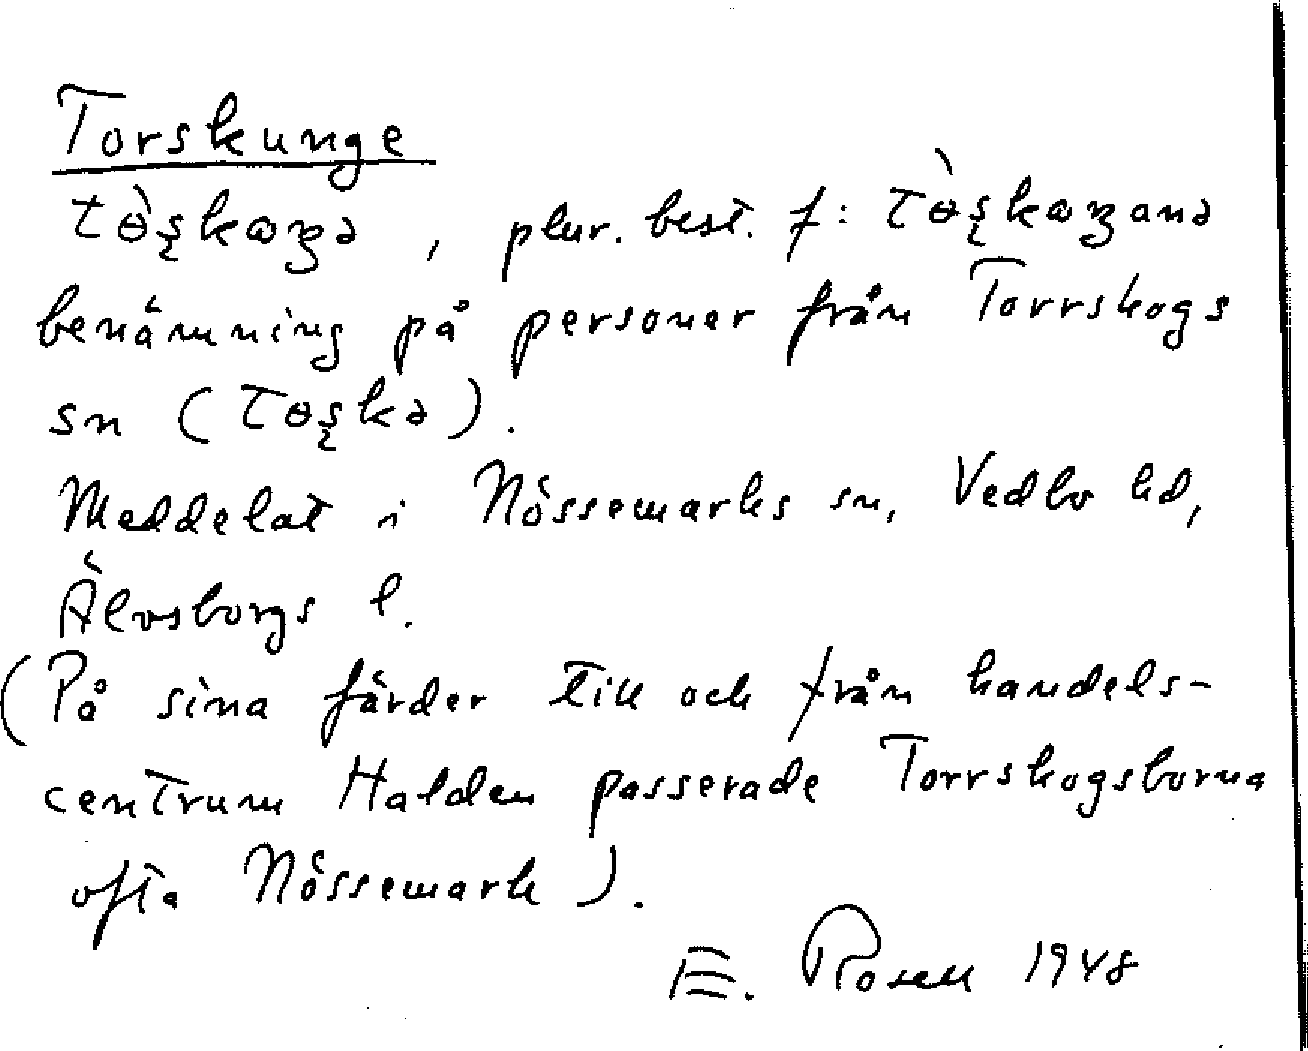 Torskunge
tɵ̀ʂkaŋə, plur. best. f: tɵ̀ʂkaŋanə
benämning på personer från Torrskogs
sn (tɵʂkə).
Meddelat i Nössemarks sn, Vedbo hd,
Älvsborgs l.
(På sina färder till och från handels-
centrum Halden passerade Torrskogsborna
ofta Nössemark).
E. Rosell 1948